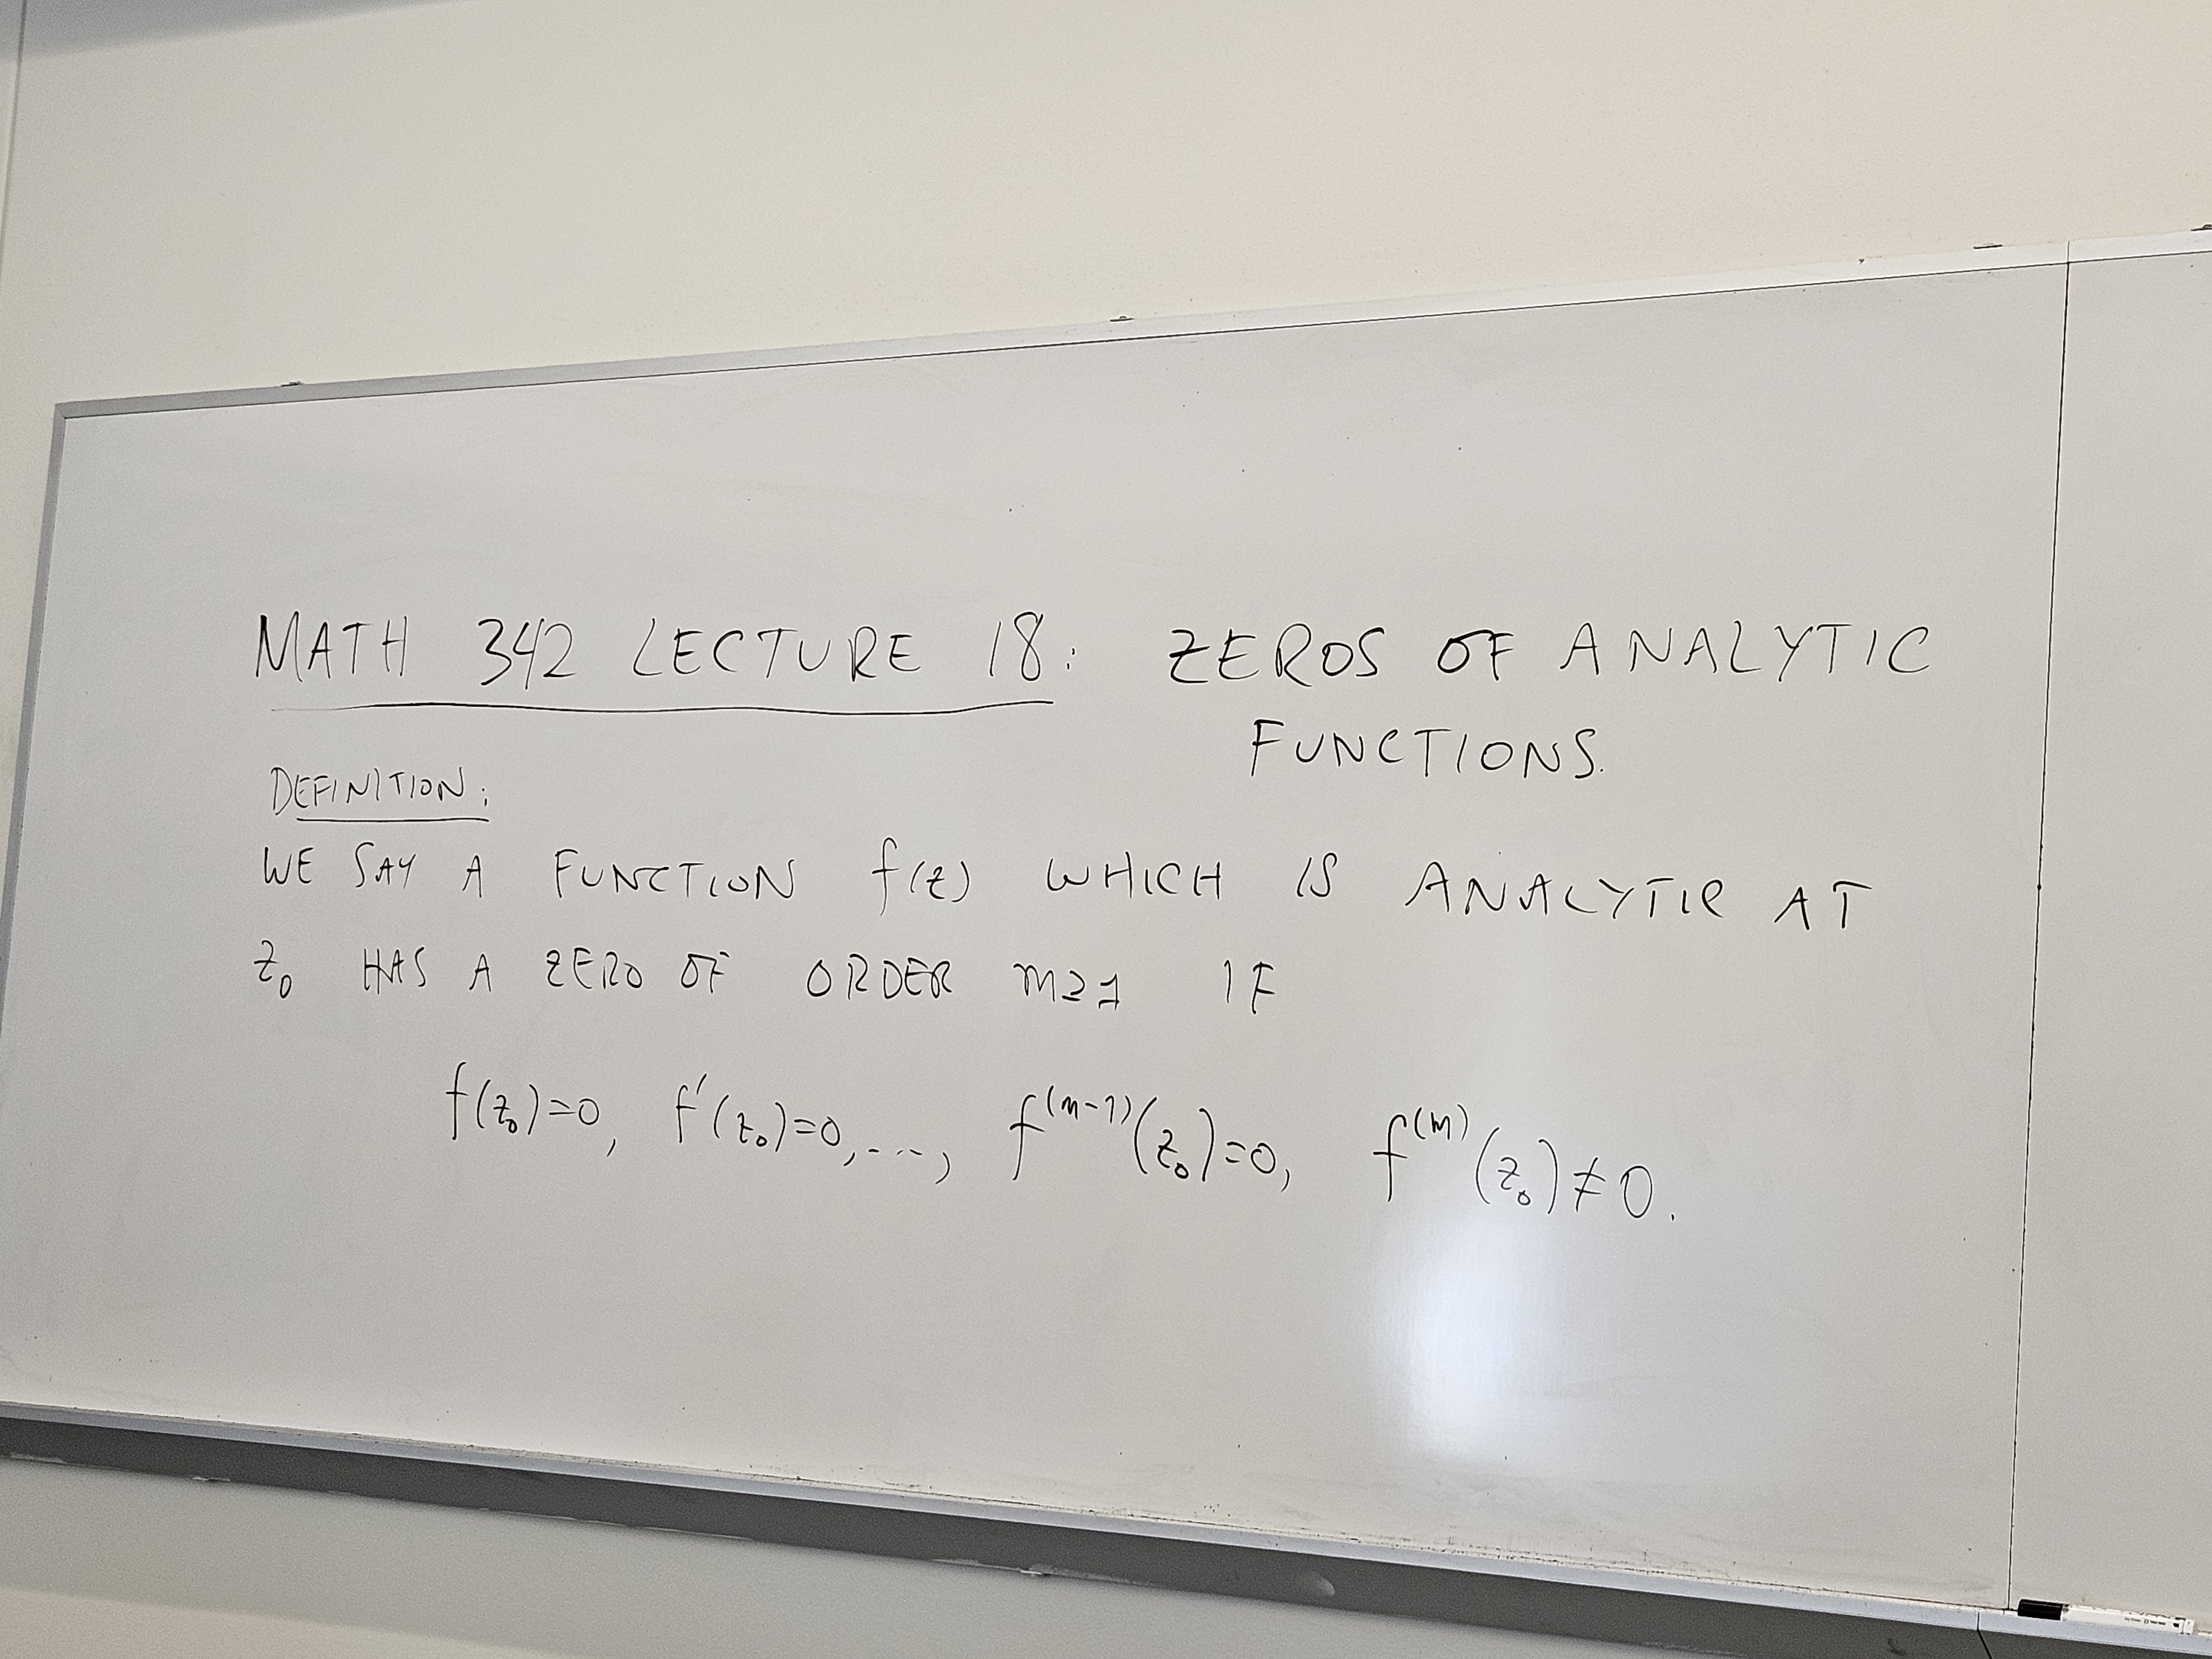 MATH 342 LECTURE 18: ZEROS OF ANALYTIC
FUNCTIONS.
DEFINITION:
WE SAY A FUNCTION f(z) WHICH IS ANALYTIC AT
z₀ HAS A ZERO OF ORDER m≥1 IF
f(z₀)=0, f'(z₀)=0,..., f⁽ᵐ⁻¹⁾(z₀)=0, f⁽ᵐ⁾(z₀)≠0.